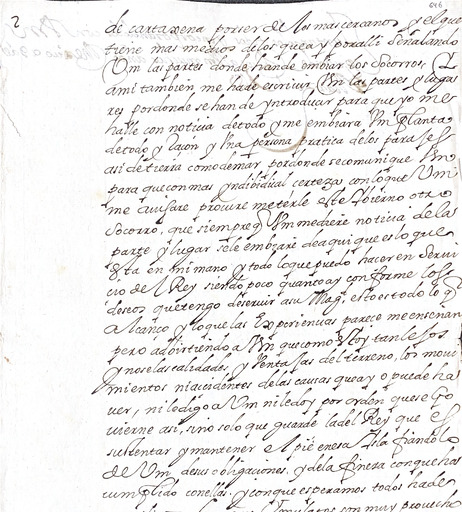 2
646
de cartaxena por ser de los mas cercanos y el que
tiene mas medios de los que ay por alli señalando
Vm las partes donde han de embiar los socorros, Y
ami tambien me hade escrivir Vm las partes y luga
res por donde se han de yntroducir para que yo me
halle con noticia de todo y me embiara Vm planta
de todo y raçon y Vna persona pratica de los paraxes
asi de tierra como de mar por donde se comunique Vm
para que con mas yndividual certeza con lo que Vm
me avisare procure meterle este Ybierno otro
socorro, que siempre q Vm me diere noticia de la
parte y lugar se le embiaré de aqui que es lo que
esta en mi mano y todo lo que puedo hacer en Servi
cio de el Rey siendo poco quanto ay conforme los
deseos que tengo de servir a su Mag. esto es todo lo q
alcanço y lo que las Experiencias parece me enseñan
pero advirtiendo a Vm que como estoy tan lexos
y no se las calidades, y Ventajas del terreno, los movi
mientos ni accidentes de las causas que ay o puede ha
uer, ni lo digo a Vm ni le doy por orden que se go
vierne asi, sino solo que guarde la del Rey que es
sustentar y mantener el pie en esa Isla fiandolo
de Vm de sus obligaciones, y de la fineza con que has
cumplido con ellas. y con que esperamos todos hade
son muy provecho